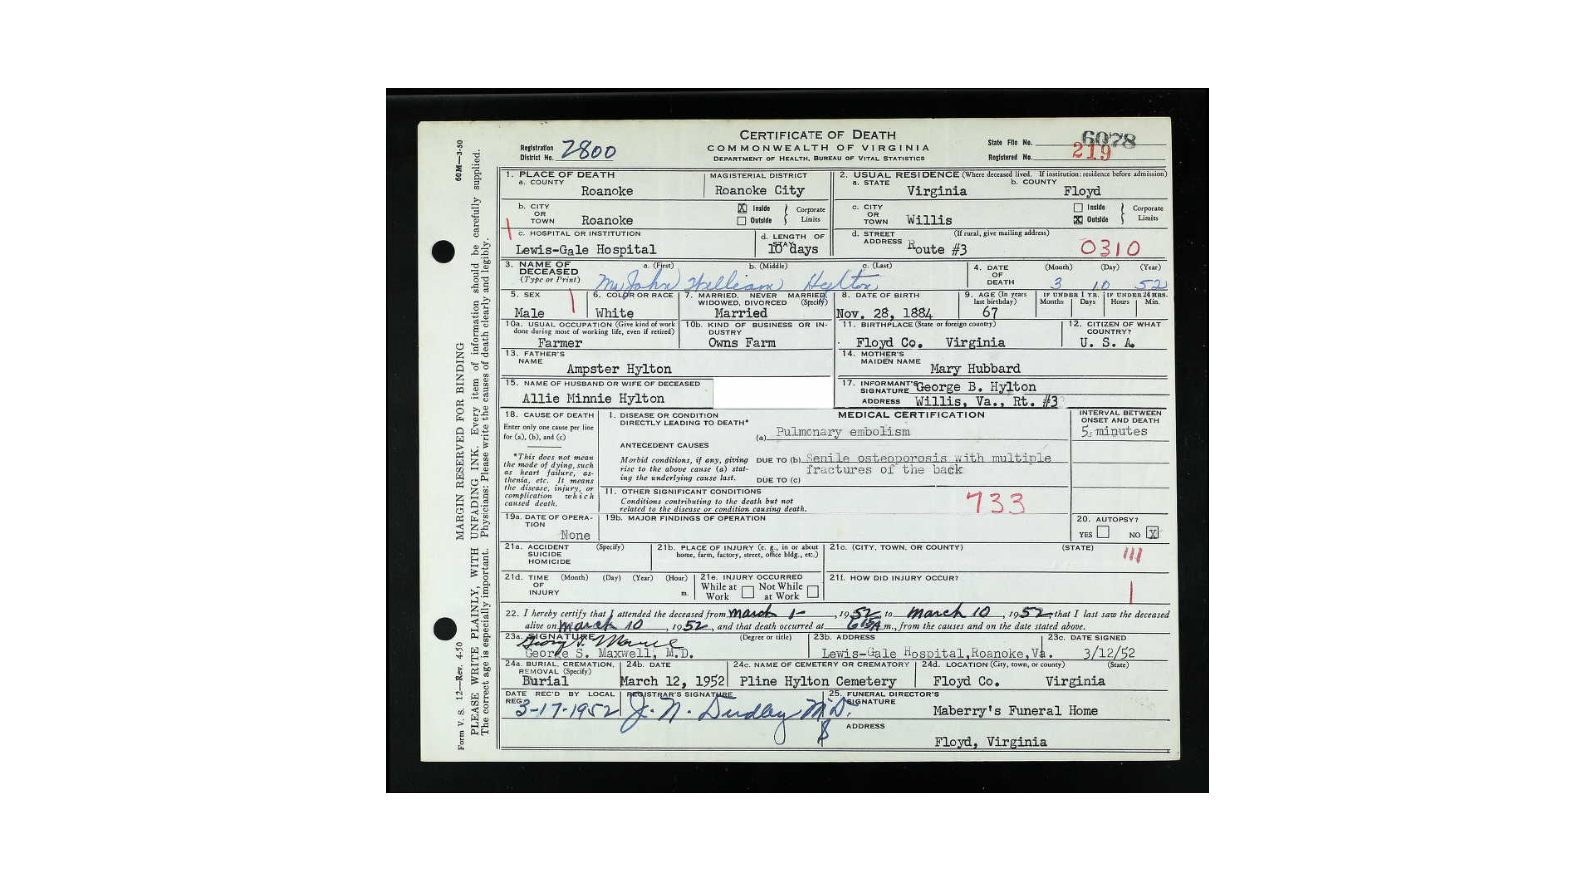 CERTIFICATE OF DEATH
COMMONWEALTH OF VIRGINIA
DEPARTMENT OF HEALTH, BUREAU OF VITAL STATISTICS
Registration District No. 2800
State File No. 6078
Registered No. 219
1. PLACE OF DEATH
a. COUNTY Roanoke
MAGISTERIAL DISTRICT Roanoke City
2. USUAL RESIDENCE (Where deceased lived. If institution: residence before admission)
a. STATE Virginia b. COUNTY Floyd
b. CITY OR TOWN Roanoke
X Inside Outside } Corporate Limits
c. CITY OR TOWN Willis
Inside X Outside } Corporate Limits
c. HOSPITAL OR INSTITUTION Lewis-Gale Hospital
d. LENGTH OF STAY 10 days
d. STREET ADDRESS (If rural, give mailing address) Route #3
0310
3. NAME OF DECEASED (Type or Print) a. (First) b. (Middle) c. (Last)
John William Hylton
4. DATE OF DEATH (Month) (Day) (Year)
3 10 52
5. SEX Male
6. COLOR OR RACE White
7. MARRIED, NEVER MARRIED, WIDOWED, DIVORCED (Specify) Married
8. DATE OF BIRTH Nov. 28, 1884
9. AGE (In years last birthday) 67
IF UNDER 1 YR. Months Days
IF UNDER 24 HRS. Hours Min.
10a. USUAL OCCUPATION (Give kind of work done during most of working life, even if retired) Farmer
10b. KIND OF BUSINESS OR INDUSTRY Owns Farm
11. BIRTHPLACE (State or foreign country) Floyd Co. Virginia
12. CITIZEN OF WHAT COUNTRY? U. S. A.
13. FATHER'S NAME Ampster Hylton
14. MOTHER'S MAIDEN NAME Mary Hubbard
15. NAME OF HUSBAND OR WIFE OF DECEASED
Allie Minnie Hylton
17. INFORMANT'S SIGNATURE George B. Hylton
ADDRESS Willis, Va., Rt. #3
18. CAUSE OF DEATH
Enter only one cause per line for (a), (b), and (c)
*This does not mean the mode of dying, such as heart failure, asthenia, etc. It means the disease, injury, or complication which caused death.
MEDICAL CERTIFICATION
INTERVAL BETWEEN ONSET AND DEATH
I. DISEASE OR CONDITION DIRECTLY LEADING TO DEATH*
(a) Pulmonary embolism
5 minutes
ANTECEDENT CAUSES
Morbid conditions, if any, giving rise to the above cause (a) stating the underlying cause last.
DUE TO (b) Senile osteoporosis with multiple
fractures of the back
DUE TO (c)
II. OTHER SIGNIFICANT CONDITIONS
Conditions contributing to the death but not related to the disease or condition causing death.
733
19a. DATE OF OPERATION None
19b. MAJOR FINDINGS OF OPERATION
20. AUTOPSY? YES NO X
21a. ACCIDENT SUICIDE HOMICIDE (Specify)
21b. PLACE OF INJURY (e. g., in or about home, farm, factory, street, office bldg., etc.)
21c. (CITY, TOWN, OR COUNTY) (STATE)
21d. TIME OF INJURY (Month) (Day) (Year) (Hour) m.
21e. INJURY OCCURRED While at Work Not While at Work
21f. HOW DID INJURY OCCUR?
22. I hereby certify that I attended the deceased from March 1-, 1952 to March 10, 1952, that I last saw the deceased
alive on March 10, 1952, and that death occurred at m., from the causes and on the date stated above.
23a. SIGNATURE (Degree or title)
George S. Maxwell, M.D.
23b. ADDRESS Lewis-Gale Hospital, Roanoke, Va.
23c. DATE SIGNED 3/12/52
24a. BURIAL, CREMATION, REMOVAL (Specify) Burial
24b. DATE March 12, 1952
24c. NAME OF CEMETERY OR CREMATORY Pline Hylton Cemetery
24d. LOCATION (City, town, or county) (State) Floyd Co. Virginia
DATE REC'D BY LOCAL REG. 3-17-1952
REGISTRAR'S SIGNATURE J. N. Dudley M.D.
25. FUNERAL DIRECTOR'S SIGNATURE Maberry's Funeral Home
ADDRESS
Floyd, Virginia
60M—3-50
MARGIN RESERVED FOR BINDING
Form V. S. 12—Rev. 4-50
PLEASE WRITE PLAINLY, WITH UNFADING INK. Every item of information should be carefully supplied.
The correct age is especially important. Physicians: Please write the causes of death clearly and legibly.